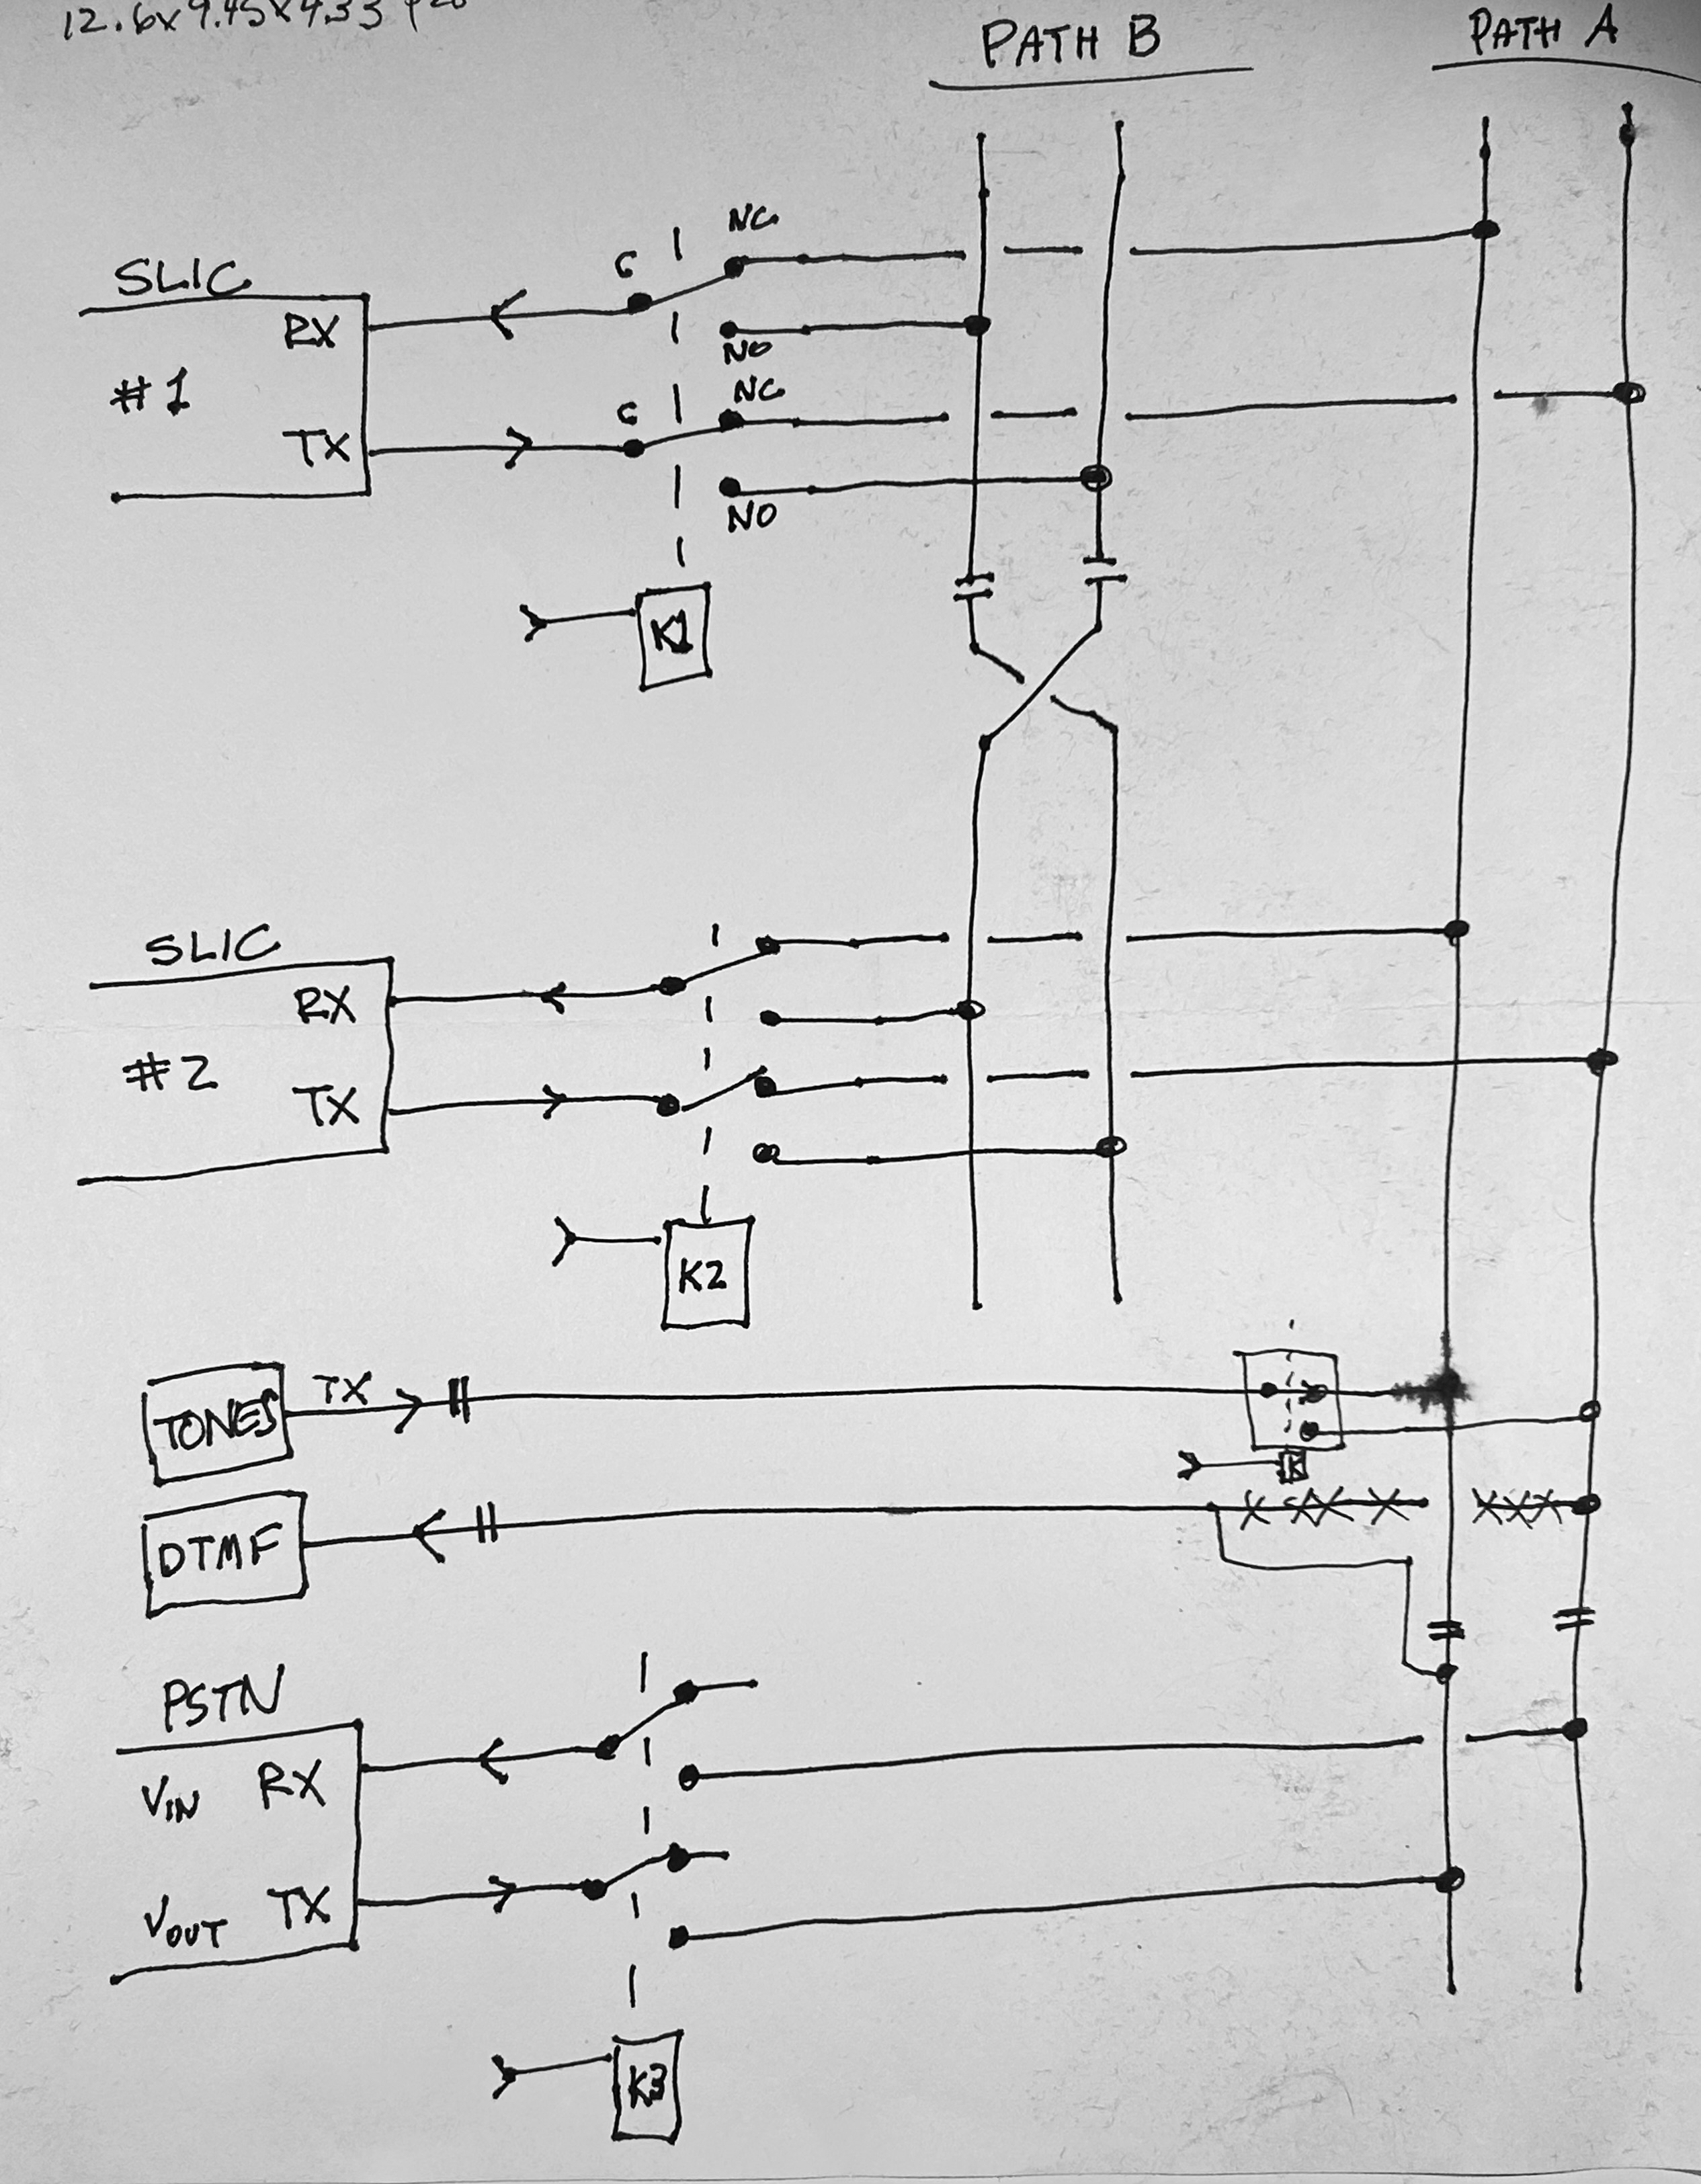 12.6x9.45x4.33
PATH B
PATH A
SLIC
#1
RX
TX
C
NC
NO
C
NC
NO
K1
SLIC
#2
RX
TX
K2
TONES
TX
K
DTMF
PSTN
VIN RX
VOUT TX
K3